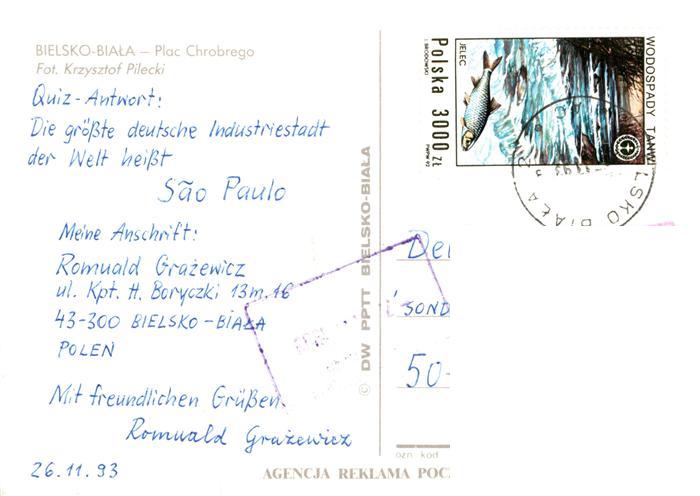 BIELSKO-BIAŁA – Plac Chrobrego
Fot. Krzysztof Pilecki
Quiz-Antwort:
Die größte deutsche Industriestadt
der Welt heißt
São Paulo
Meine Anschrift:
Romuald Grażewicz
ul. Kpt. H. Boryczki 13m.16
43-300 BIELSKO-BIAŁA
POLEN
Mit freundlichen Grüßen
Romuald Grażewicz
26.11.93
© DW PPTT BIELSKO-BIAŁA
AGENCJA REKLAMA POC
WODOSPADY TANWI
JELEC
Polska 3000 zł
I. BRODOWSKI
PWPW 92
LSKO BIAŁA
'SOND
50-
ozn kod